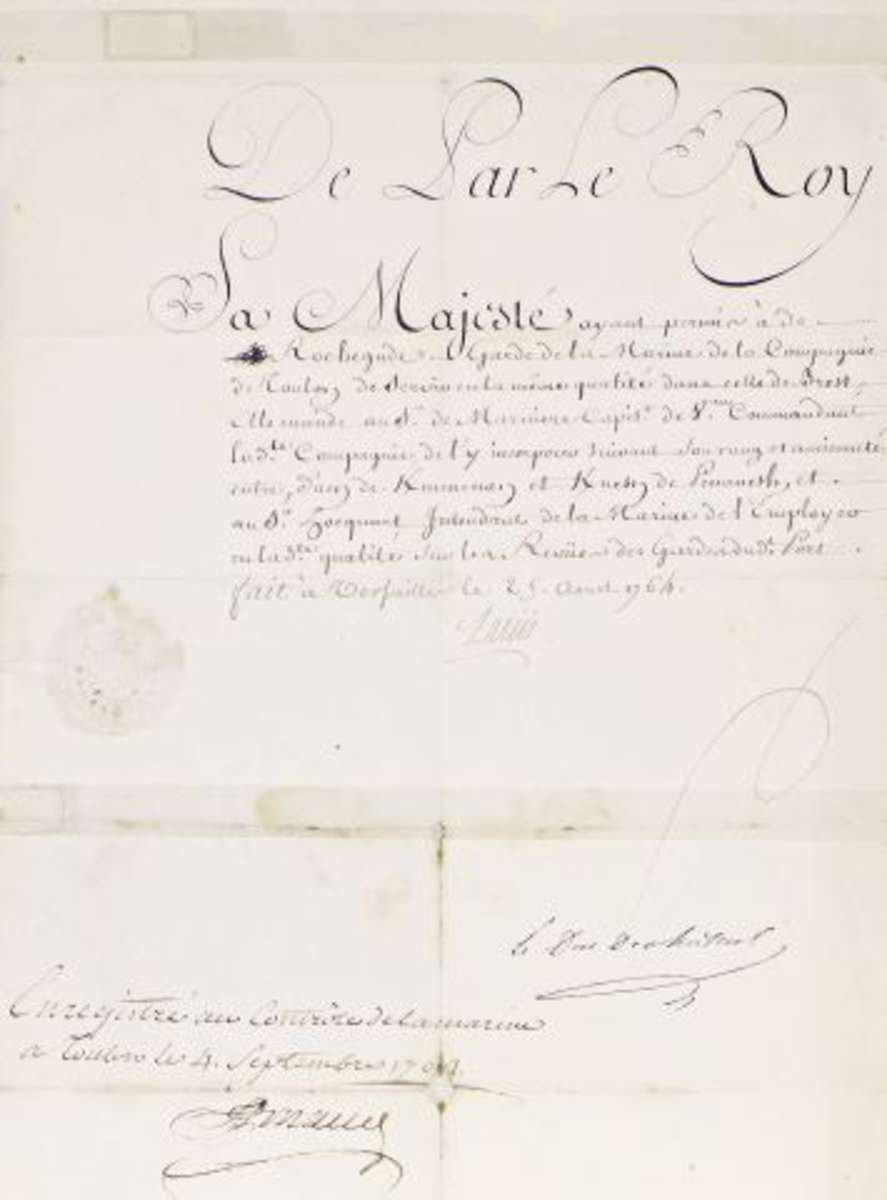 De Par Le Roy
Sa Majesté ayant permis à de
Rochegude Garde de la Marine de la Compagnie
de Toulon de Servir en la même qualité dans celle de Brest,
Elle mande au Sr. de Marniere Capine. de Veau Commandant
lad.te Compagnie de l'y incorporer suivant son rang et ancienneté
entre, de et de et
au Sr. Hocquart Intendant de la Marine de l'Employer
en lad.te qualité sur les Revües des Gardes dud. Port
fait à Versailles le 25. Aoust 1764.
Louis
Le Duc De Choiseul
Enregistré au Contrôle de la marine
a Toulon le 4. Septembre 1764.